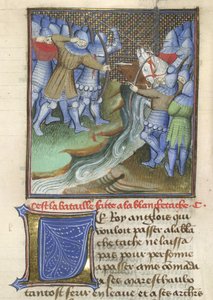 Cest la bataille faitte a la blanchetache. C.
Le Roy anglois qui
vouloit passer a la bla
che tache ne laissa
pas pour personne
a passer ains comāda
a ses mareschaulx
tantost ferir en leaue et a ses archiers